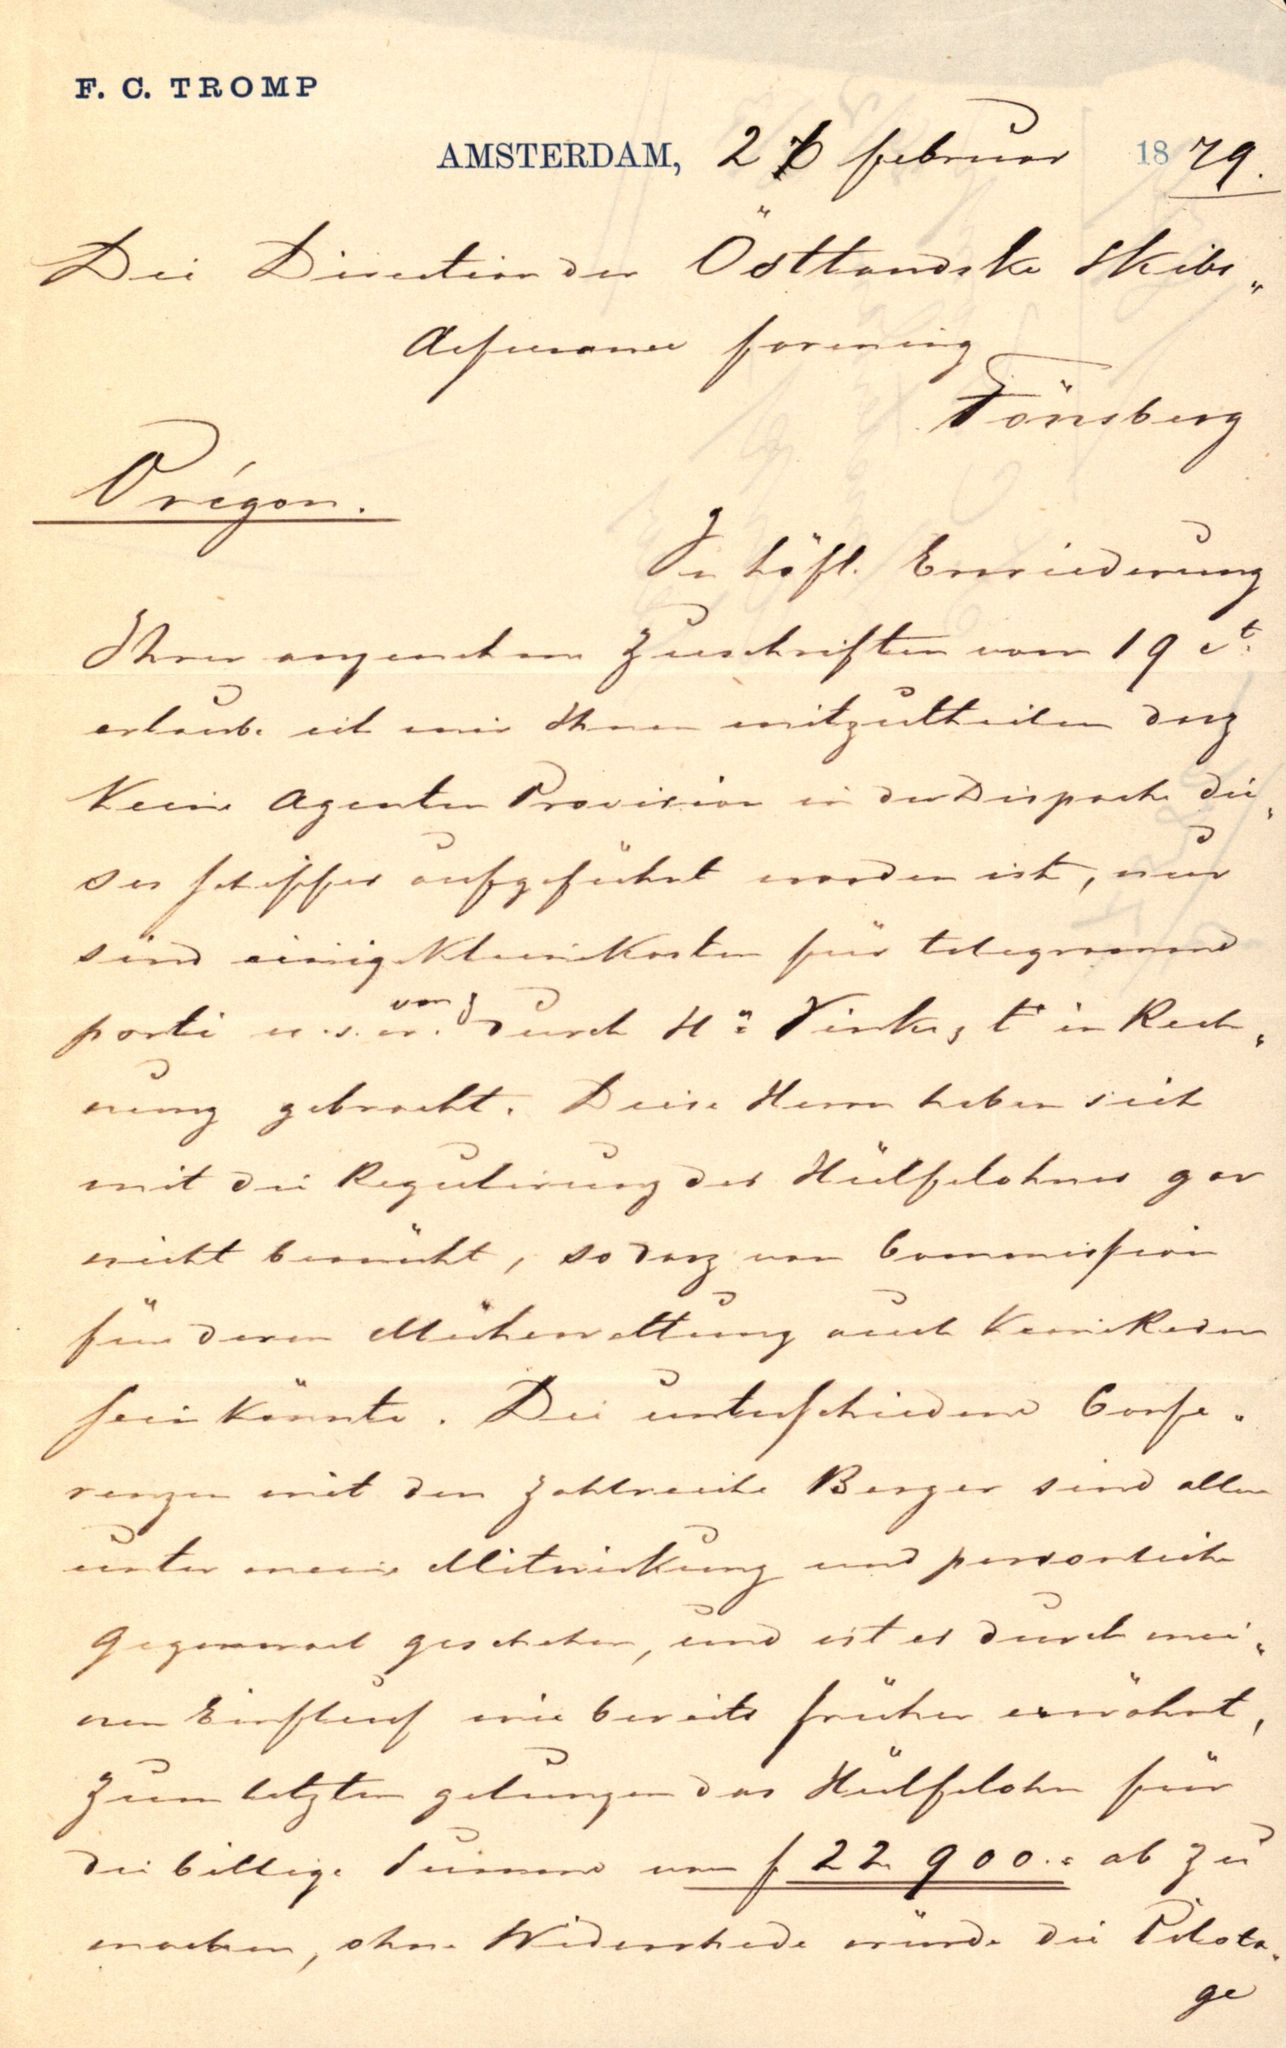 F. C. TROMP
AMSTERDAM, 26 februar 1879.
Die Direction der Östlandske Skibs„
Assurance forening
Tönsberg
Orégon.
In höfl. Erwiederung
Ihrer angenehmen Zuschriften vom 19 ct.
erlaube ich mir Ihnen mitzutheilen dasz
Keine Agenten Provision in der Dispache die„
ses schiffes aufgeführt worden ist, nur
sind einige Kleine Kosten für telegramme
porti u.s.w. von durch Hn Vinke & Co in Rech„
nung gebracht. Diese Herrn haben sich
mit die Regulirung des Hülfslohnes gar
nicht bemüht, so dasz von Commission
für deren Mühewaltung auch Keine Reden
sein könnte. Die unterschiedene Confe„
renzen mit den zahlreiche Berger sind allen
unter meine Mitwirkung und persönliche
Gegenwart geschehen, und ist es durch mei„
nen Einfluss wie bereits früher erwähnt,
zum letzten gelungen das Hülfslohn für
die billige Summe von f 22900.= ab zu
machen, ohne Widerrede würde die Pilota„
ge